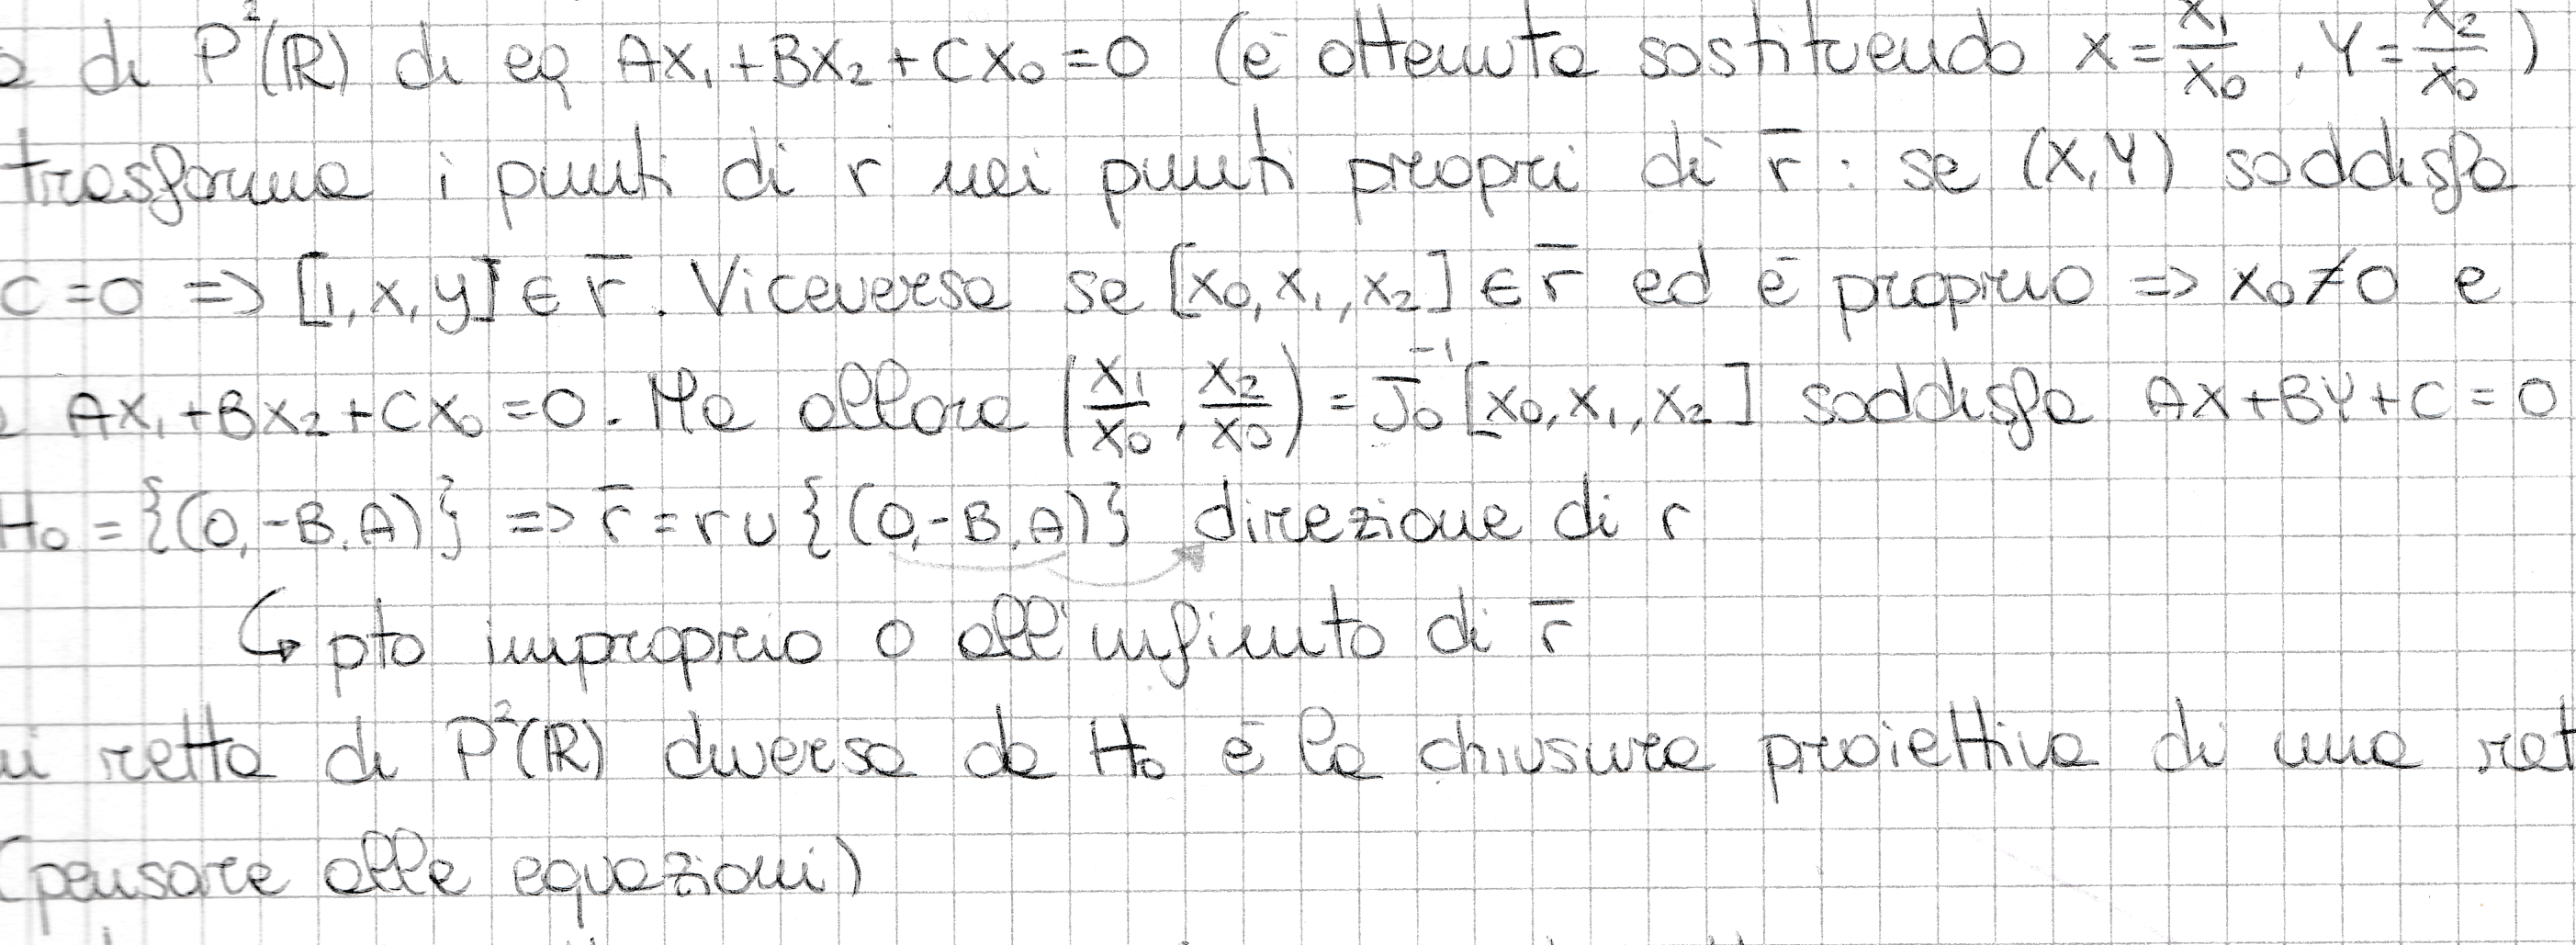 di P²(R) di eq AX₁+BX₂+CX₀=0 (è ottenuta sostituendo X=X₁/X₀, Y=X₂/X₀)
trasforma i punti di r nei punti propri di r̅ : se (X,Y) soddisfa
C=0 => [1,x,y] ∈ r̅. Viceversa se [X₀,X₁,X₂] ∈ r̅ ed è proprio => X₀≠0 e
AX₁+BX₂+CX₀=0. Ma allora (X₁/X₀, X₂/X₀) = J₀⁻¹[X₀,X₁,X₂] soddisfa AX+BY+C=0
H₀ = {(0,-B,A)} => r̅ = r ∪ {(0,-B,A)} direzione di r
↳ pto improprio o all'infinito di r̅
retta di P²(R) diversa da H₀ è la chiusura proiettiva di una ret
(pensare alle equazioni)